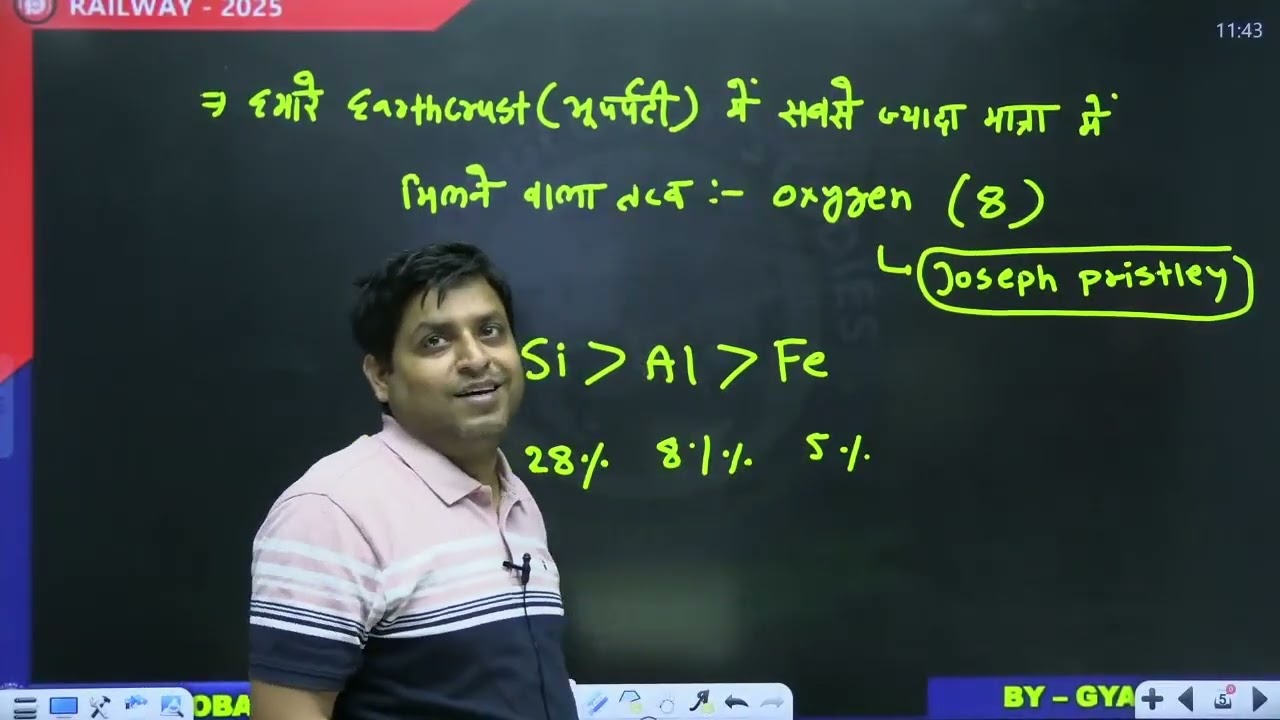 RAILWAY - 2025
11:43
⇒ हमारे Earthcrust (भूपर्पटी) में सबसे ज्यादा मात्रा में
मिलने वाला तत्व :- oxygen (8)
Joseph pristley
Si > Al > Fe
28% 8.1% 5%
OBA
BY – GYA
5